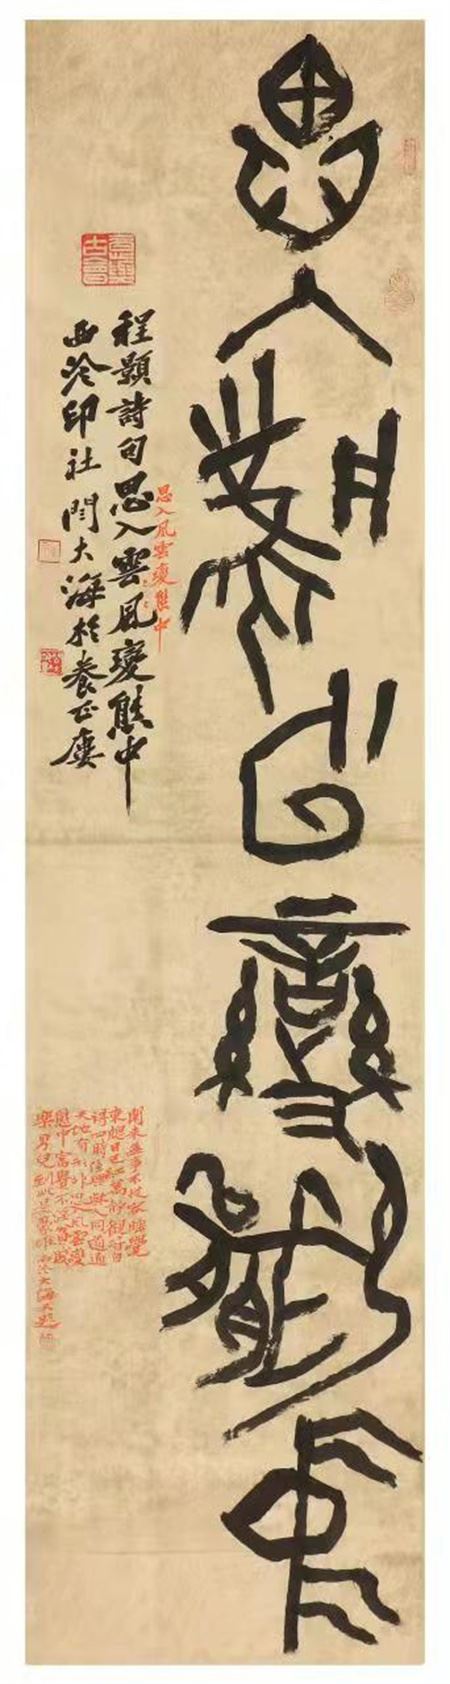 思入風雲變態中
思入風雲變態中
程顥詩句思入雲風變態中
西泠印社閆大海於養正廔
閒來無事不從容睡覺
東窗日已紅萬物靜觀皆自
得四時佳興與人同道通
天地有形外思入風雲變
態中富貴不淫貧賤
樂男兒到此是豪雄西泠大海又題